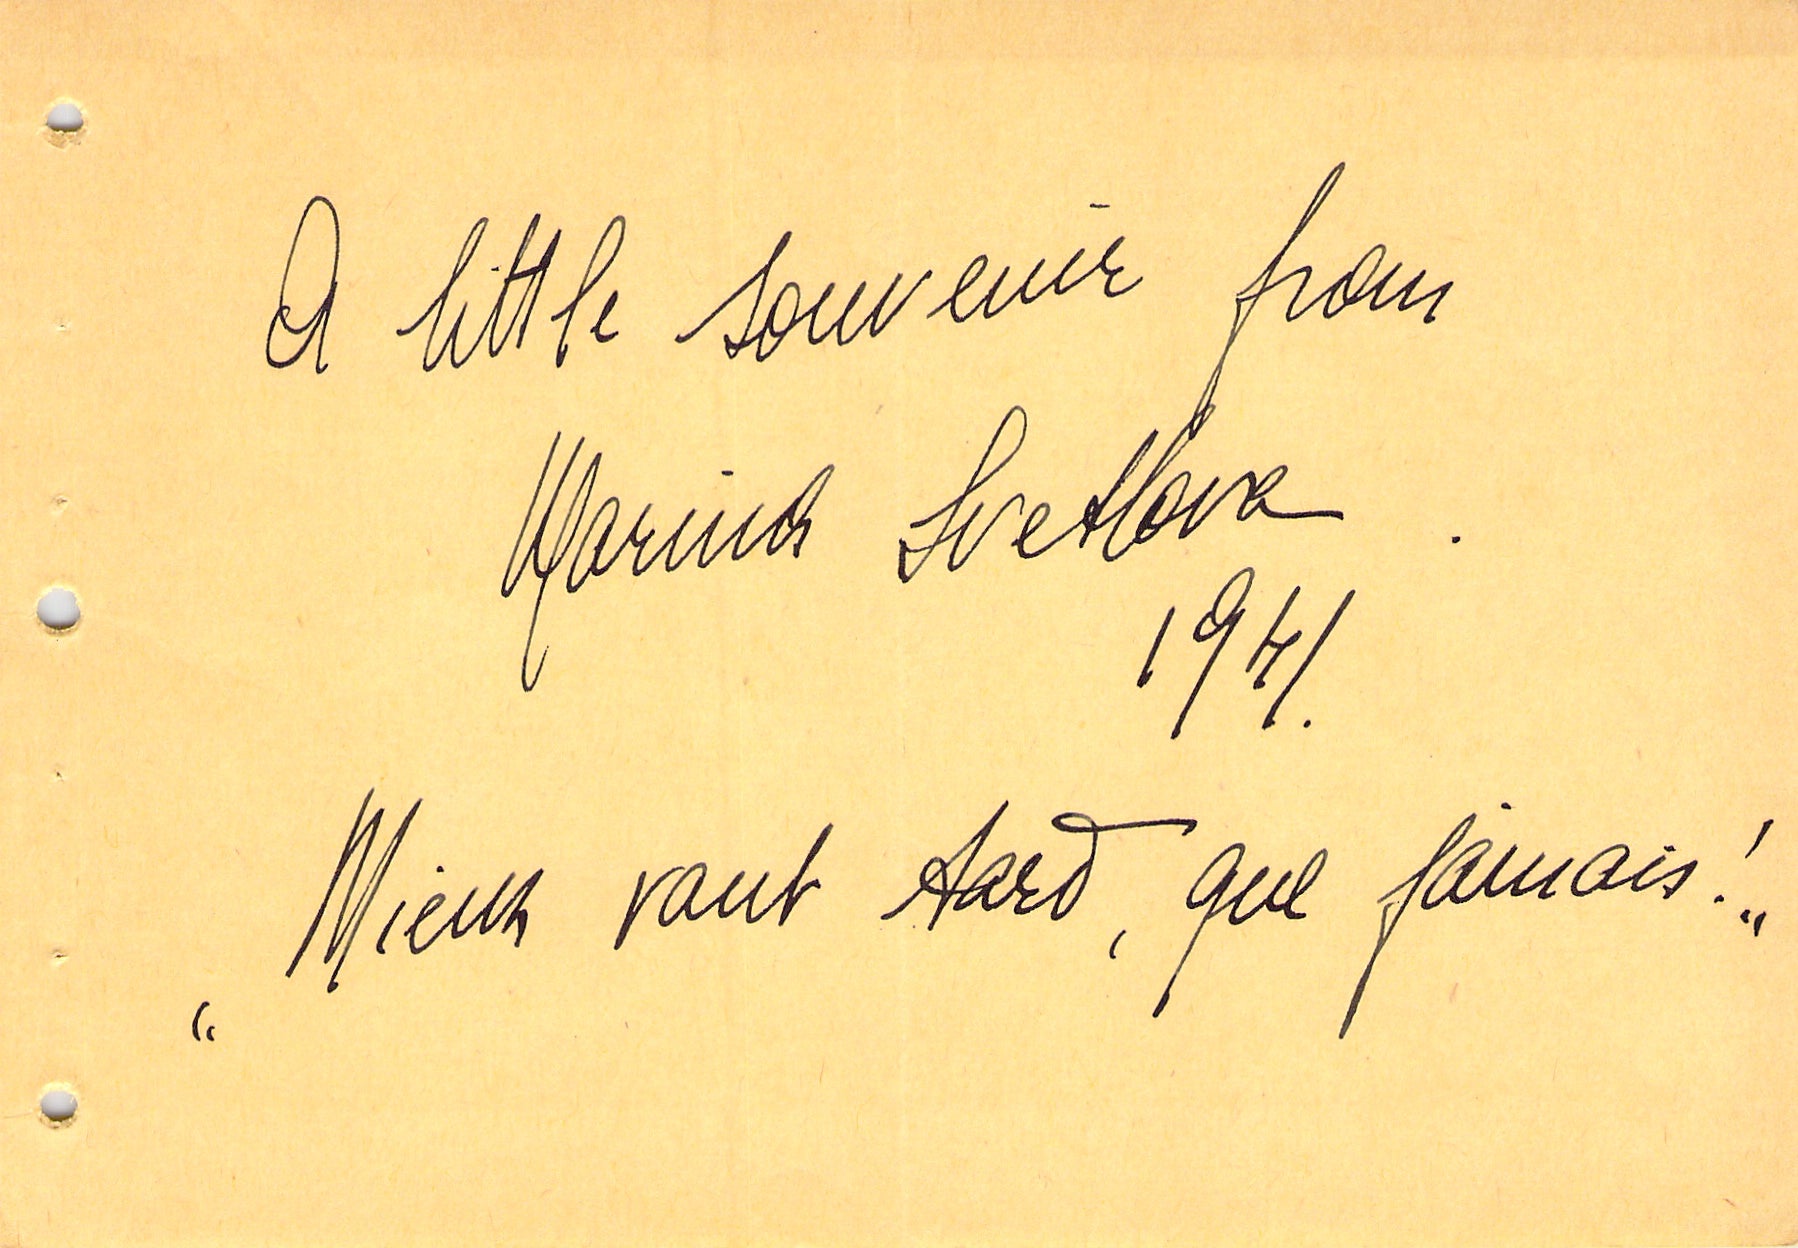 A little souvenir from
Marina Svetlova .
1941.
„Mieux vaut tard, que jamais!"